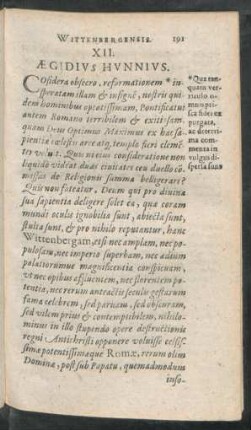 WITTENBERGENSIS. 191
XII.
ÆGIDIVS HVNNIVS.
COnsidera obsecro, reformationem * in-
speratam illam & insignē, nostris qui-
dem hominibus optatissimam, Pontificatui
antem Romano terribilem & exitiosam,
quam Deus Optimus Maximus ex hac sa-
pientia cælestis arce atq; templo fieri clemē
ter voluit. Quis
liquidò videat duas civitates ceu duello cō-
missas de Religionis summa belligerare?
Quis non fateatur, Deum qui pro divina
sua sapientia deligere solet ea, qua coram
mundi oculis ignobilia sunt, abiecta sunt,
stulta sunt, & pro nihilo reputantur, hanc
Wittenbergam, etsi nec amplam, nec po-
pulosam, nec imperio superbam, nec ædium
palatiorumve magnificentia conspicuam,
vt nec opibus affluentem, nec florentem po-
tentia, nec rerum anteactis seculis gestarum
fama celebrem, sed parvam, sed obscuram,
sed vilem prius & contemptibilem, nihilo-
minus in illo stupendo opere destructionis
regni Antichristi opponere voluisse celsis-
simæ potentissimæque Romæ, rerum olim
Dominæ, post sub Papatu, quemadmodum
info-
* Qua tan-
quam ver-
tutis
sica fidei ex
purgata,
ac deterri-
ma com-
menta in
vulgus di-
spersa sunt